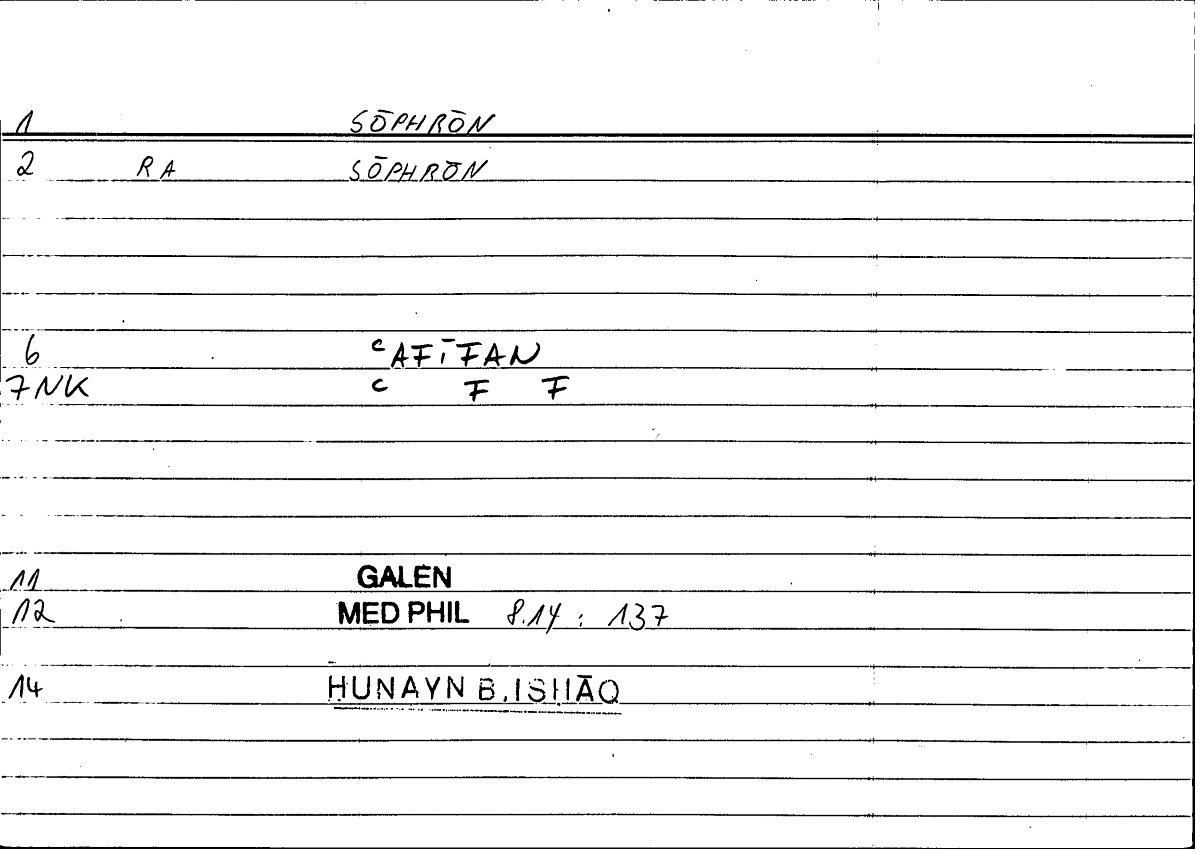 1 SŌPHRŌN
2 RA SŌPHRŌN
6 ᶜAFĪFAN
7NK ᶜ F F
11 GALEN
12 MED PHIL 8.14 : 137
14 HUNAYN B. ISHĀQ